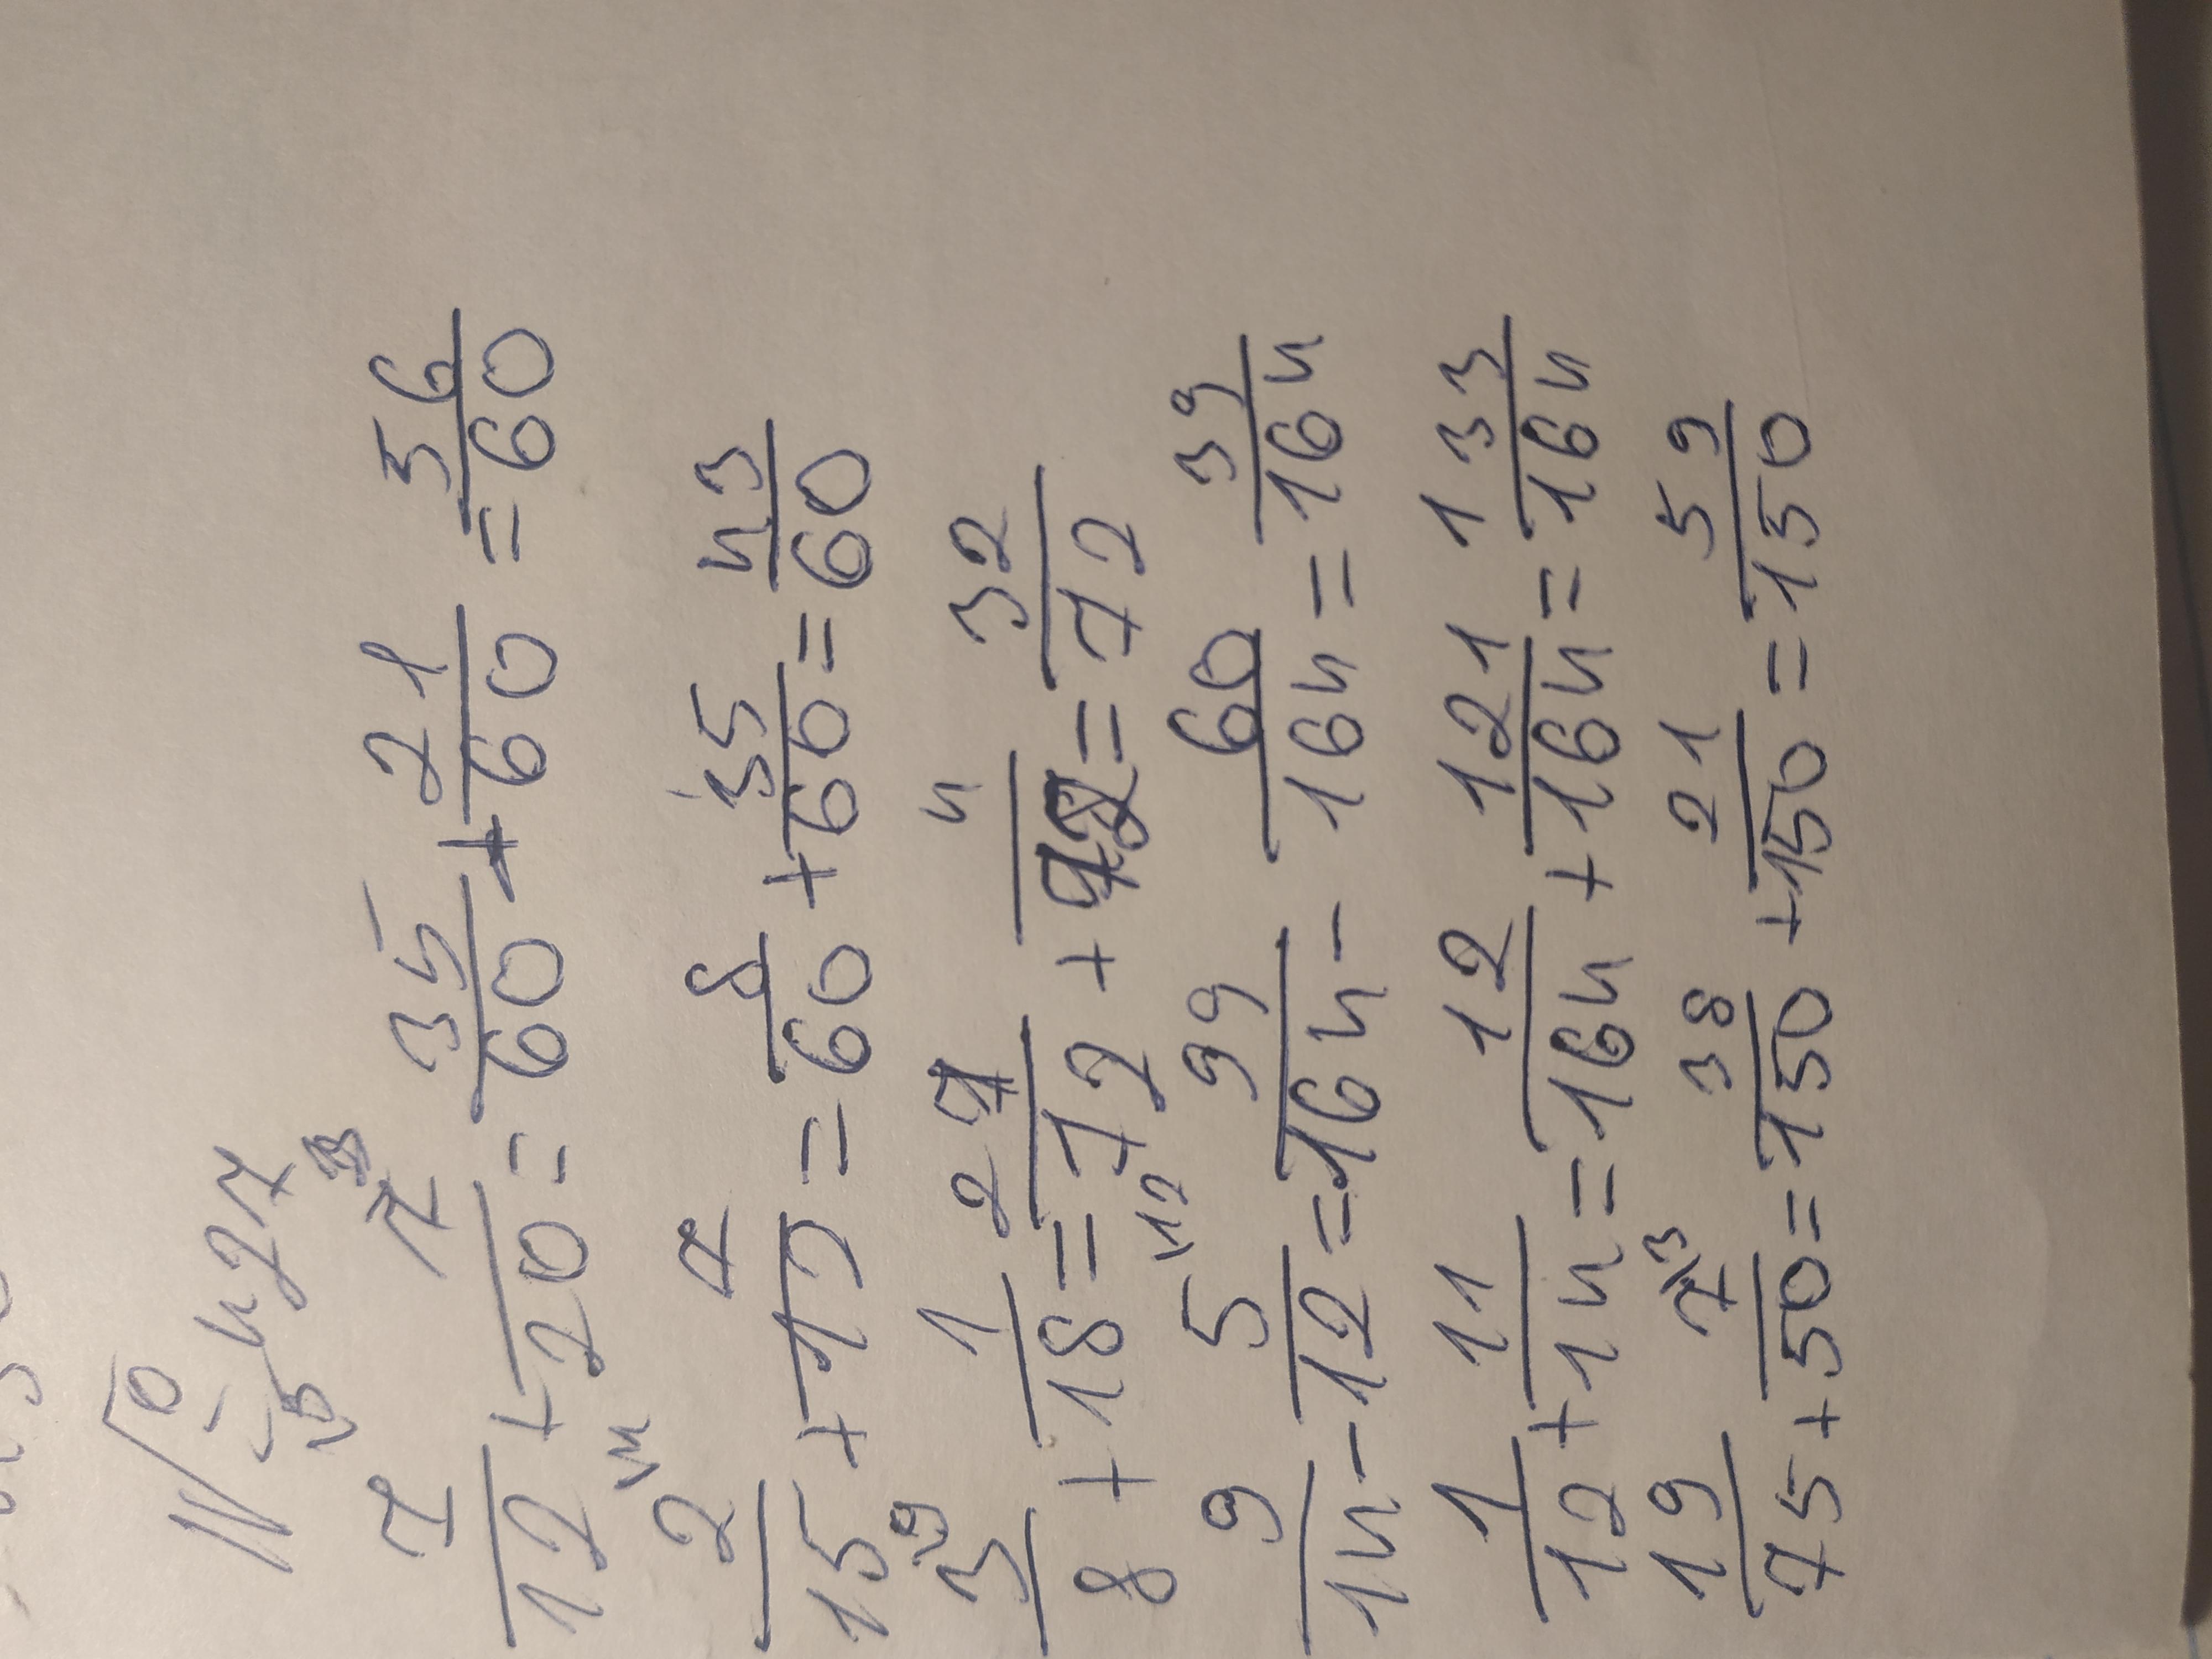 № 427
7/12 + 7/20 = 35/60 + 21/60 = 56/60
2/15 + 7/12 = 8/60 + 35/60 = 43/60
3/8 + 1/18 = 27/72 + 4/72 = 32/72
9/14 - 5/12 = 99/164 - 60/164 = 39/164
1/12 + 11/14 = 12/164 + 121/164 = 133/164
19/75 + 7/50 = 38/150 + 21/150 = 59/150